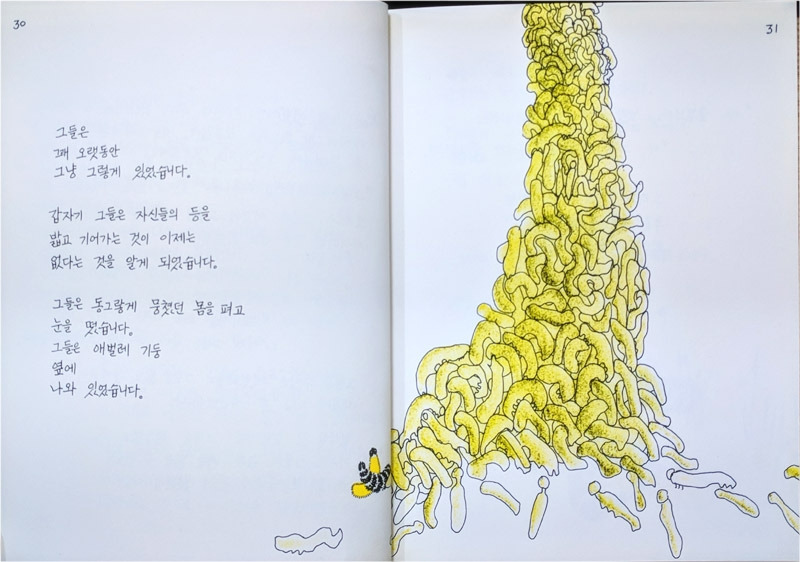 30
그들은
꽤 오랫동안
그냥 그렇게 있었습니다.
갑자기 그들은 자신들의 등을
밟고 기어가는 것이 이제는
없다는 것을 알게 되었습니다.
그들은 동그랗게 뭉쳤던 몸을 펴고
눈을 떴습니다.
그들은 애벌레 기둥
옆에
나와 있었습니다.
31